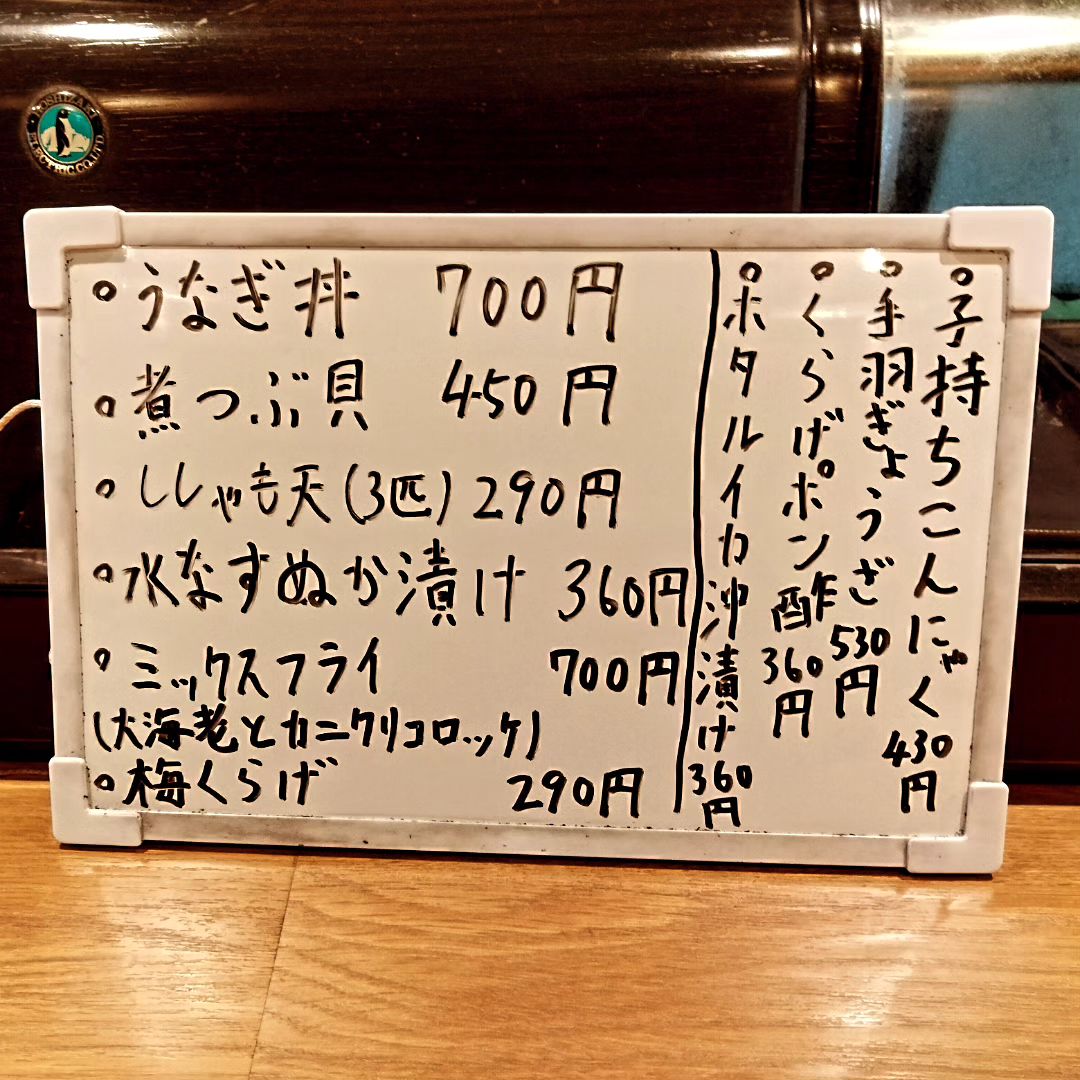 HOSHIZAKI ELECTRIC CO.,LTD
○うなぎ丼 700円
○煮つぶ貝 450円
○ししゃも天(3匹)290円
○水なすぬか漬け 360円
○ミックスフライ 700円
(大海老とカニクリコロッケ)
○梅くらげ 290円
○子持ちこんにゃく 430円
○手羽ぎょうざ 530円
○くらげポン酢 360円
○ホタルイカ沖漬け 360円